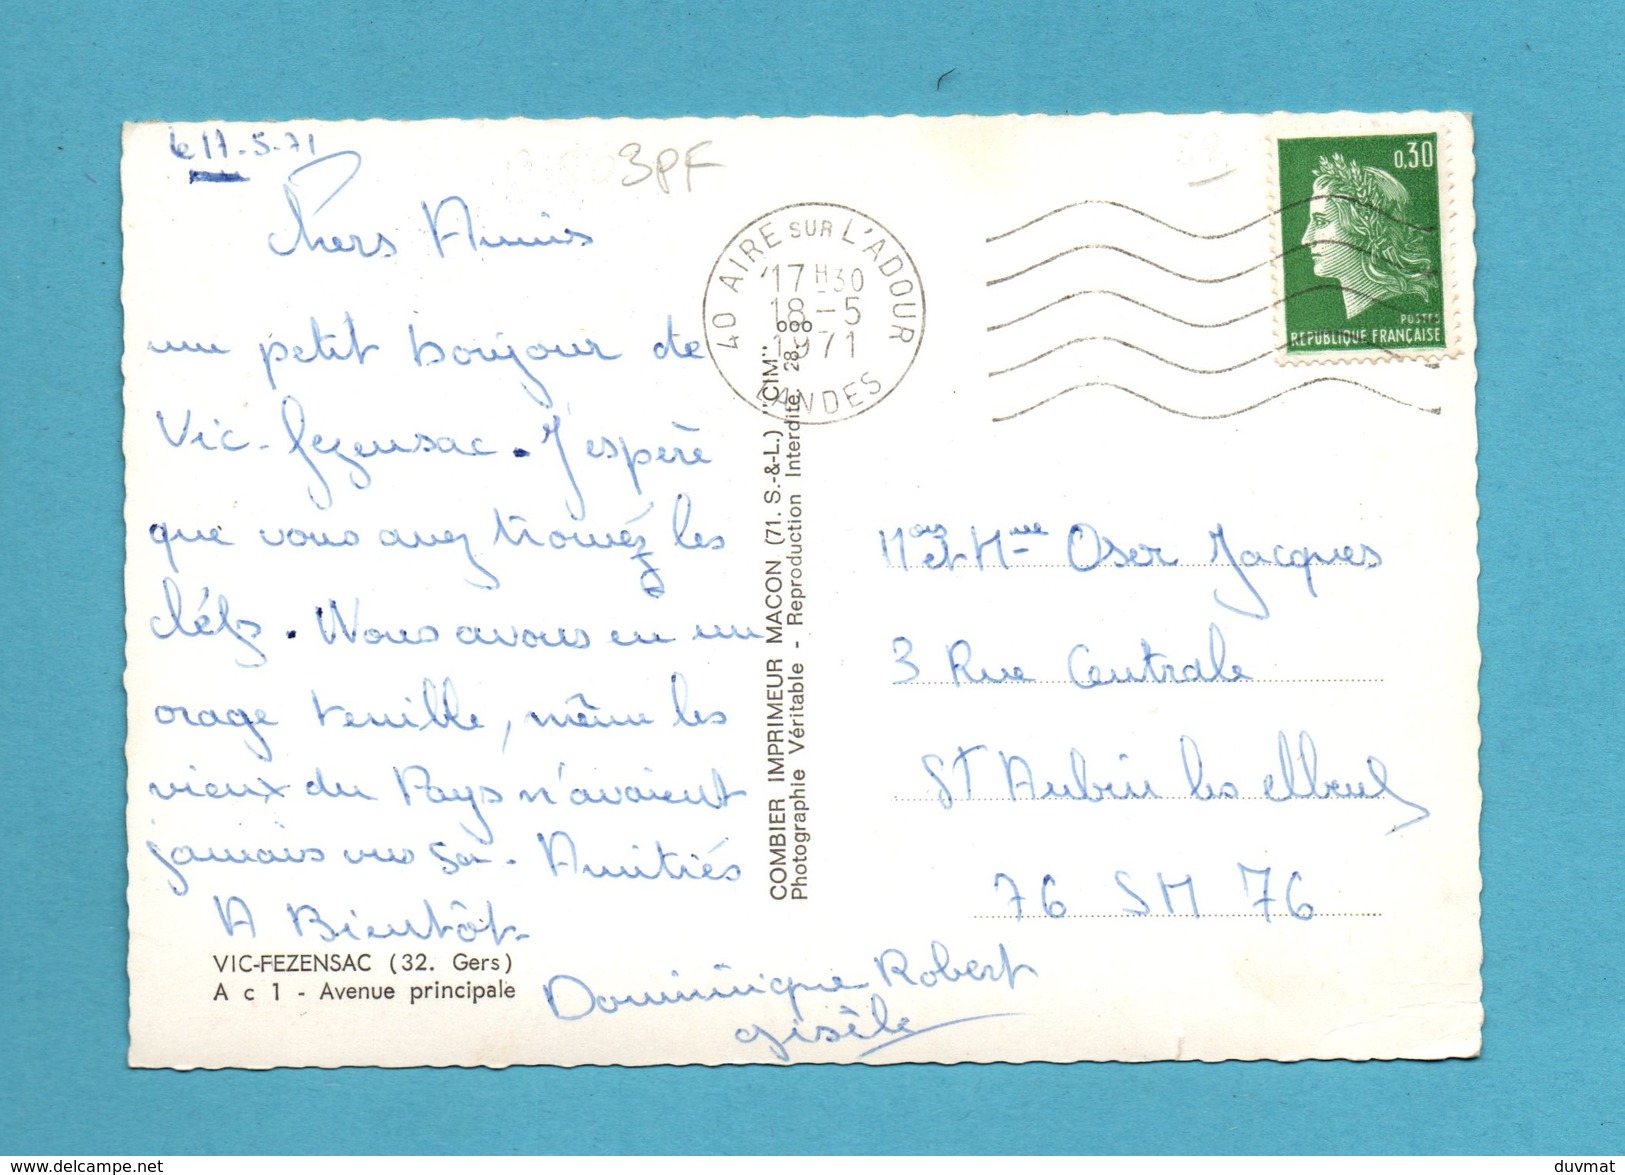 le 17-5-71
3PF
Chers Amis
un petit bonjour de
Vic-Fezensac. J'espère
que vous avez trouvéz les
cléfs. Nous avons eu un
orage terrible, même les
vieux du Pays n'avaient
jamais vus ça. Amitiés
A Bientôt
VIC-FEZENSAC (32. Gers)
A c 1 - Avenue principale
Dominique Robert
Gisèle
COMBIER IMPRIMEUR MACON (71. S.-&-L.) "CIM"
Photographie Véritable - Reproduction Interdite
40 AIRE SUR L'ADOUR
17H30
18-5
1971
LANDES
0,30
POSTES
REPUBLIQUE FRANÇAISE
Mors et Mme Oser Jacques
3 Rue Centrale
St Aubin les elbeuf
76 SM 76
duvmat